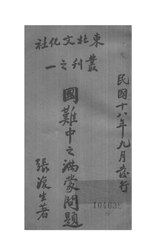 東北文化社
叢刊之一
民國十八年九月發行
國難中之滿蒙問題
張復生著